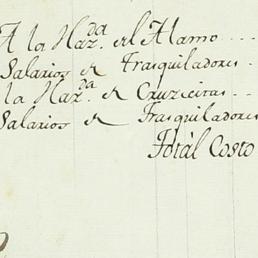 A la Haz.da del Alamo . . .
Salarios de Trasquiladores .
la Haz.da de Cruzecitas . .
Salarios de Trasquiladores
Totàl Costo